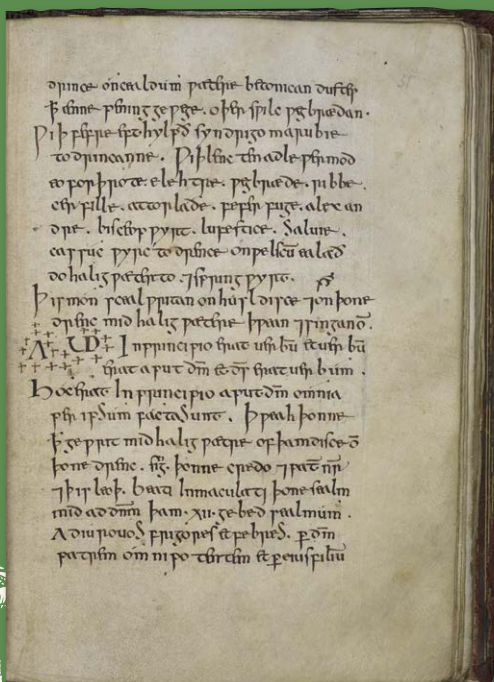 drince on cealdum wætre betonican dust þær
ꝥ ænne pening gewege . oþer swilc wegbrædan .
Wiþ fefre eft hylpð syndrigo marubie
to drincanne . Wiþ lencten adle wermod
eoforþrote . elehtre . wegbræde . ribbe .
cerfille . attorlaðe . feferfuge . alexan
dre . bisceop wyrt . lufestice . Saluie .
cassuc wyrc to drence on weliscū ealað
do halig wæter to . ⁊ springwyrt .
Þis mon sceal writan on husldisce ⁊ on þone
drenc mid halig wætere þwean ⁊ singan oñ .
A ω In principio erat uerbū et uerbū
erat aput dm̄ et ds̄ erat uerbum .
Hoc erat In principio aput dm̄ omnia
per ipsum facta sunt . Þweah þonne
ꝥ gewrit mid halig wætre of þam disce oñ
þone drenc . sing þonne credo ⁊ pat̄ nr̄
⁊ þis leoþ . beati Inmaculati þone sealm
mid ad dnm̄ þam . xii . gebed sealmum .
Adiuro uos frigores et febres . p̄ dm̄
patrem omnipotentem et p̄ eius filiū